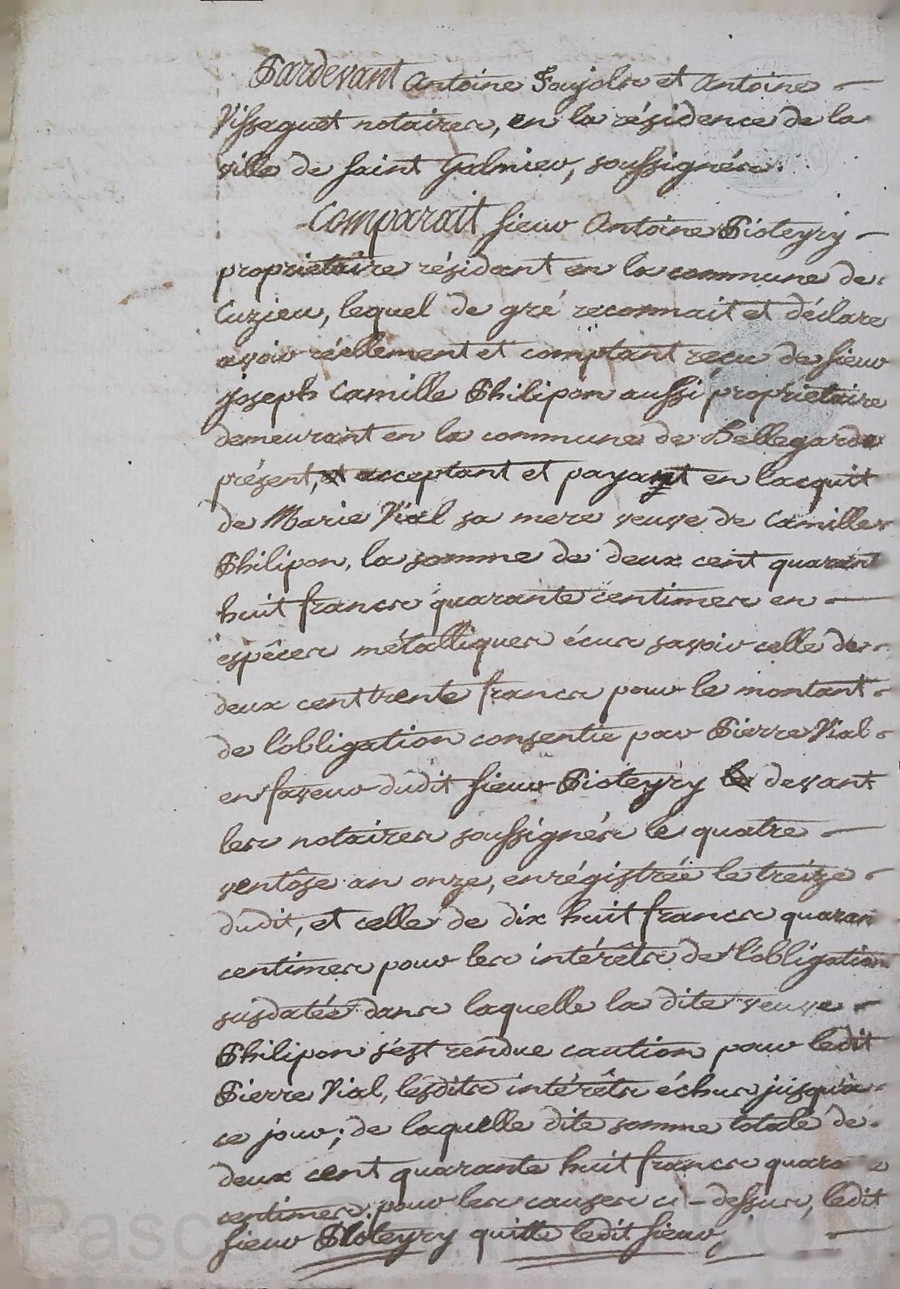 Pardevant Antoine Foujols et Antoine
Vissaguet notaires, en la résidence de la
ville de Saint Galmier, soussignés.
Comparait sieur Antoine Pioteyry
proprietaire résidant en la commune de
Cuzieu, lequel de gré reconnait et déclare
avoir réellement et comptant recu de sieur
joseph Camille Philipon aussi proprietaire
demeurant en la commune de Bellegarde
présent, et acceptant et payant en lacquit
de Marie Vial sa mere veuve de Camille
Philipon, la somme de deux cent quarant
huit francs quarante centimes en
espêces métalliques écus savoir celle de
deux cent trente francs pour le montant
de l'obligation consentie par Pierre Vial
en faveur dudit sieur Pioteyry devant
les notaires soussignés le quatre
ventôse an onze, enrégistrée le treize
dudit, et celle de dix huit francs quaran
centimes pour les intérêts de l'obligation
susdatée dans laquelle la dite veuve
Philipon s'est rendue caution pour ledit
Pierre Vial, lesdits intérêts échus jusqu'a
ce jour; de laquelle dite somme totale de
deux cent quarante huit francs quara
centimes pour les causes ci-dessus, ledit
sieur Pioteyry quitte ledit sieur